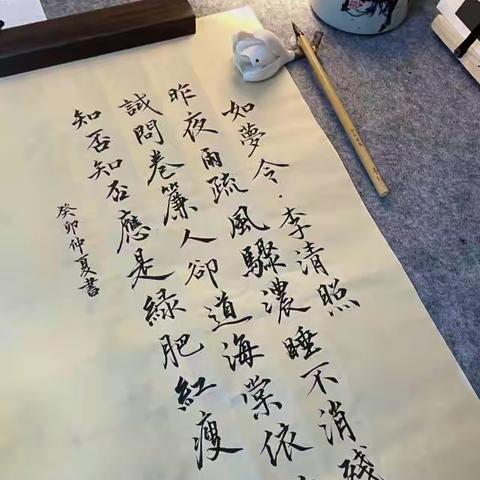 如夢令·李清照
昨夜雨疏風驟濃睡不消殘
誠問卷簾人卻道海棠依
知否知否應是綠肥紅瘦
癸卯仲夏書